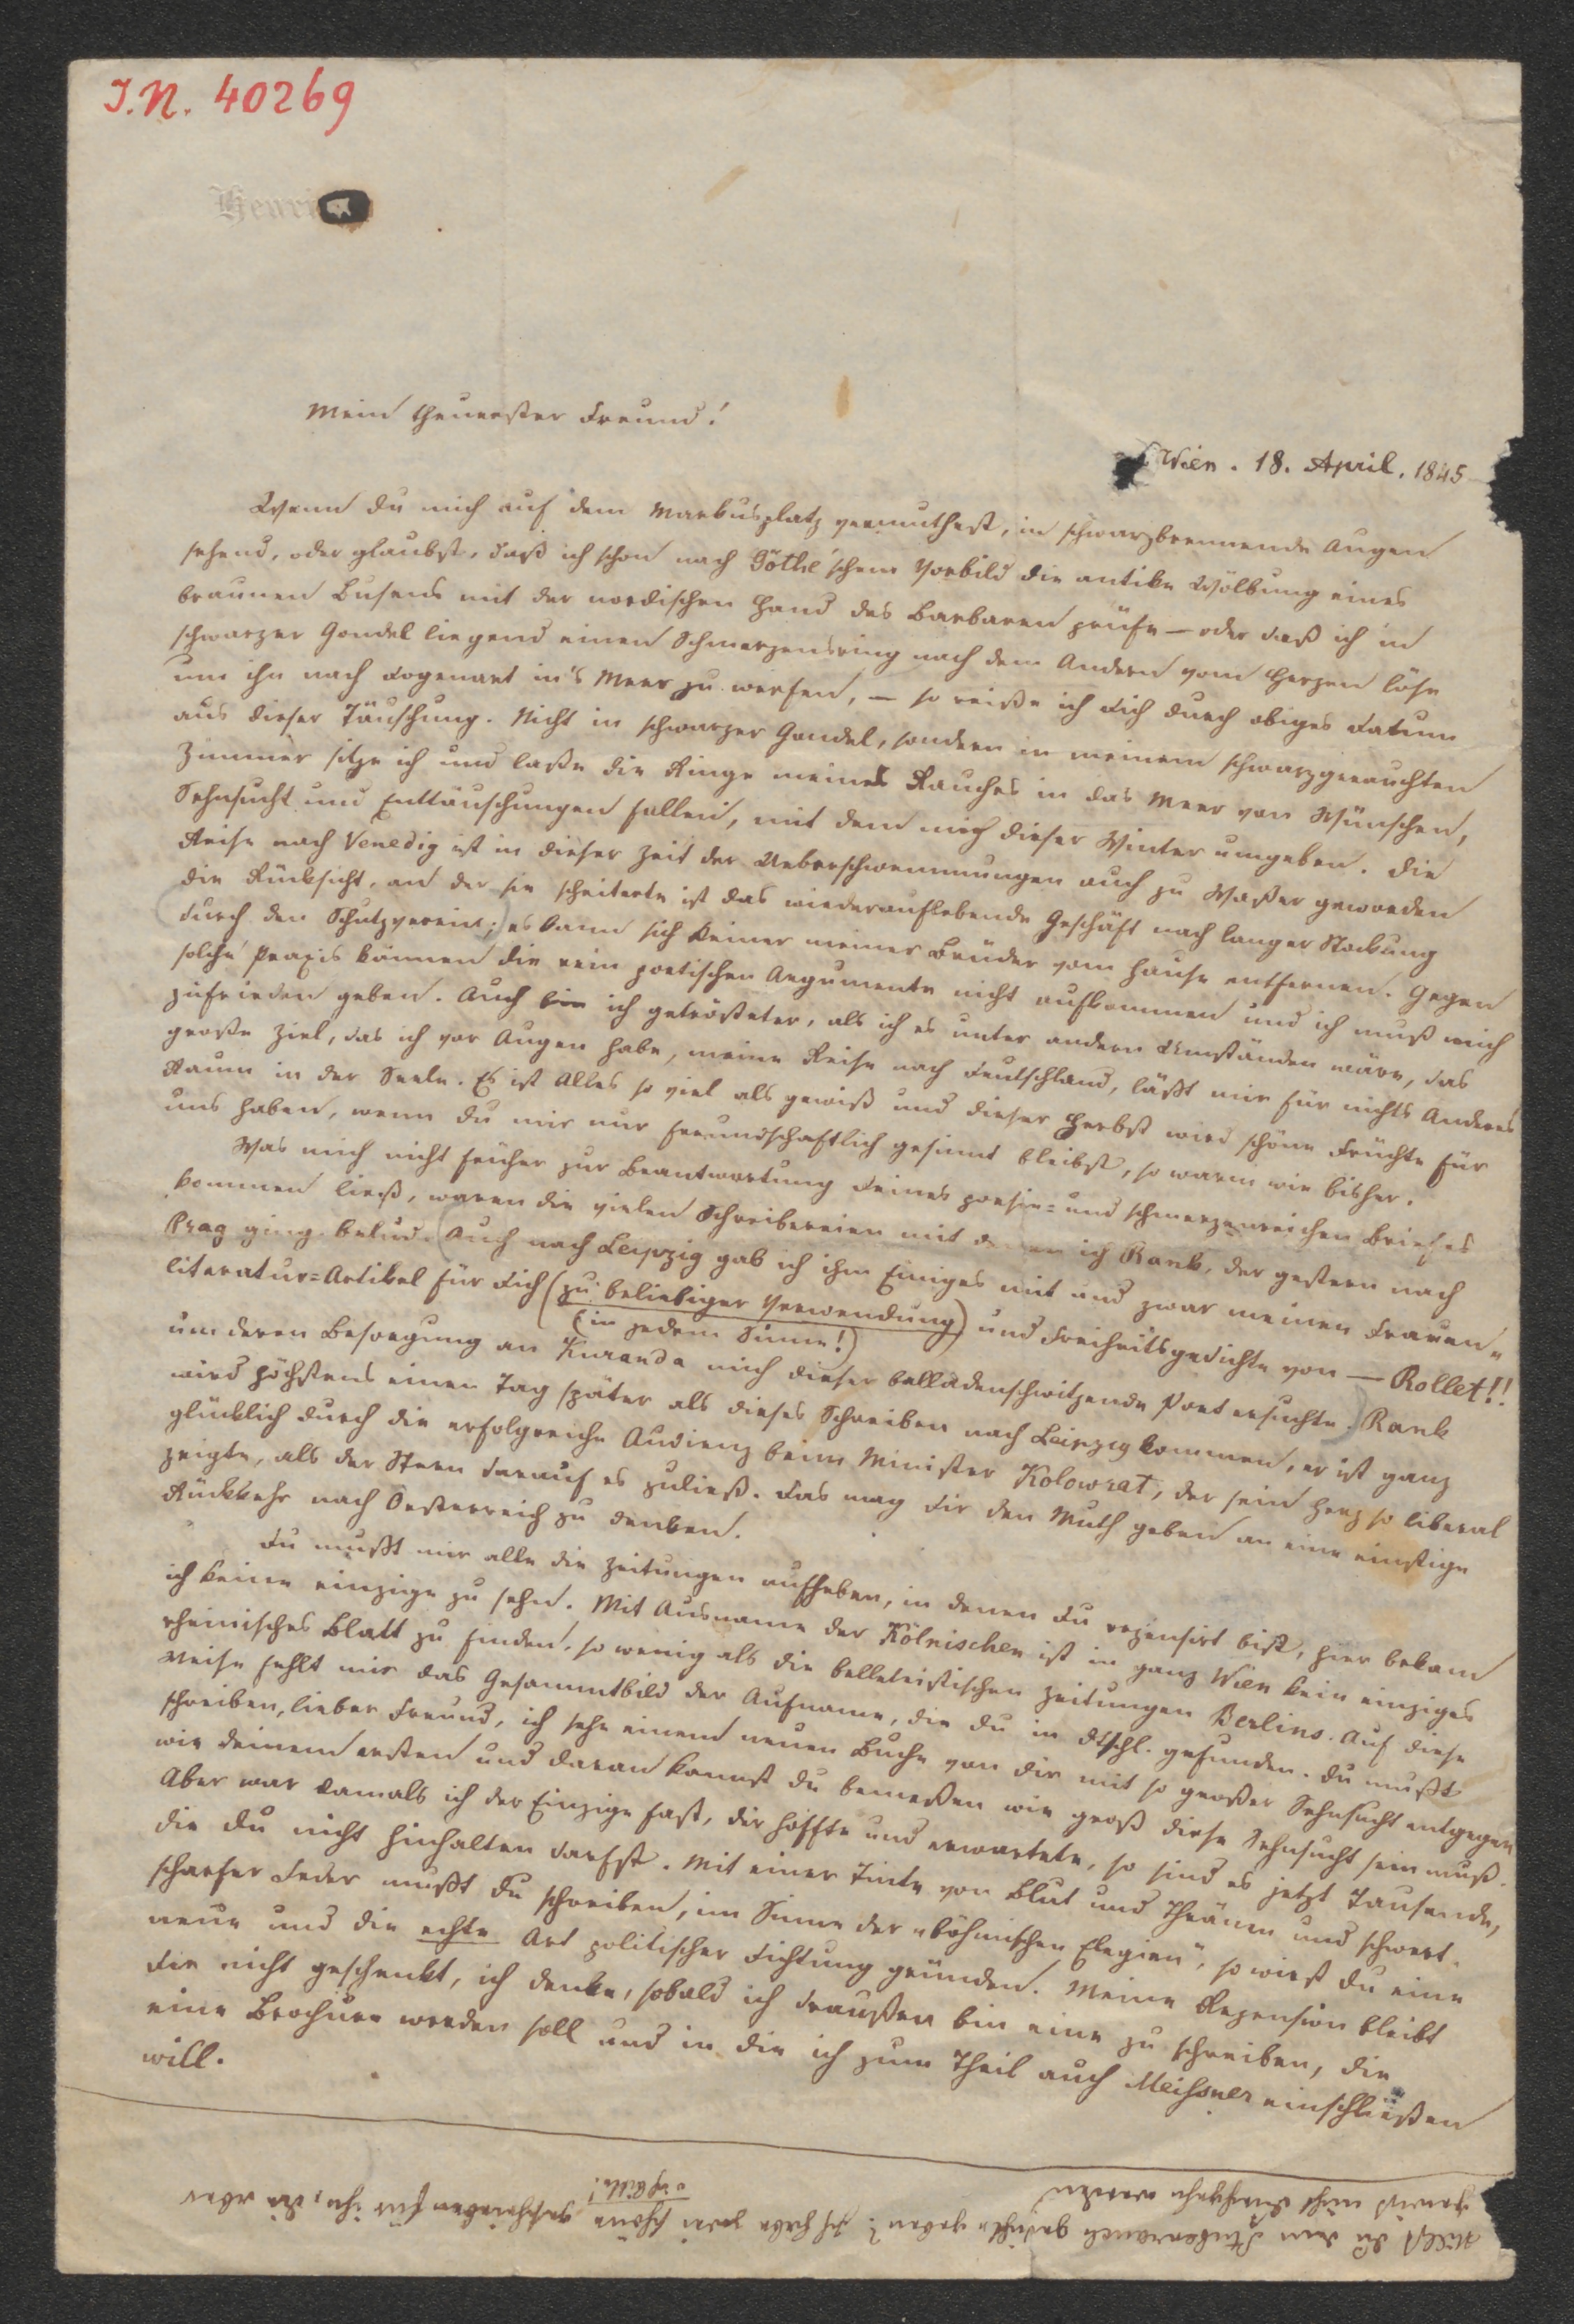 J.N. 40269
Henri
Mein theuerster Freund!
Wien. 18. April. 1845
Wenn Du mich auf dem Markusplatz vermuthest, in schwarzbrennende Augen
sehend, oder glaubst, daß ich schon nach Göthe'schem Vorbild die antike Wölbung eines
braunen Busens mit der nordischen Hand des Barbaren prüfe — oder daß ich in
schwarzer Gondel liegend einen Schmerzensring nach dem Andern vom Herzen löse
um ihn nach Dogenart in's Meer zu werfen, — so reiße ich Dich durch obiges Datum
aus dieser Täuschung. Nicht in schwarzer Gondel, sondern in meinem schwarzgerauchten
Zimmer sitze ich und laße die Ringe meines Rauches in das Meer von Wünschen,
Sehnsucht und Enttäuschungen fallen, mit dem mich dieser Winter umgeben. Die
Reise nach Venedig ist in dieser Zeit der Ueberschwemmungen auch zu Waßer geworden
die Rücksicht, an der sie scheiterte ist das wiederauflebende Geschäft nach langer Stockung
(durch den Schutzverein;) es kann sich keiner meiner Brüder vom Hause entfernen. Gegen
solche Praxis können die rein poetischen Argumente nicht aufkommen und ich muß mich
zufrieden geben. Auch bin ich getrösteter, als ich es unter andern Umständen wäre, das
große Ziel, das ich vor Augen habe, meine Reise nach Deutschland, läßt mir für nichts Anderes
Raum in der Seele. Es ist Alles so viel als gewiß und dieser Herbst wird schöne Früchte für
uns haben, wenn Du mir nur freundschaftlich gesinnt bleibst, so warm wie bisher.
Was mich nicht früher zur Beantwortung Deines poesie= und schmerzenreichen Briefes
kommen ließ, waren die vielen Schreibereien mit denen ich Rank, der gestern nach
Prag ging belud. (Auch nach Leipzig gab ich ihm Einiges mit und zwar meinen Frauen=
literatur=Artikel für Dich (zu beliebiger Verwendung) und Freiheitsgedichte von — Rollet!!
(in jedem Sinne!)
um deren Besorgung an Kuranda mich dieser balladenschwitzende Poet ersuchte.) Rank
wird höchstens einen Tag später als dieses Schreiben nach Leipzig kommen, er ist ganz
glücklich durch die erfolgreiche Audienz beim Minister Kolowrat, der sein Herz so liberal
zeigte, als der Stern darauf es zuließ. Das mag Dir den Muth geben an eine einstige
Rückkehr nach Oesterreich zu denken.
Du mußt mir alle die Zeitungen aufheben, in denen Du rezensirt bist, hier bekam
ich keine einzige zu sehn. Mit Ausname der Kölnischen ist in ganz Wien kein einziges
rheinisches Blatt zu finden, so wenig als die belletristischen Zeitungen Berlins. Auf diese
Weise fehlt mir das Gesammtbild der Aufname, die Du in Dtschl. gefunden. Du mußt
schreiben, lieber Freund, ich sehe einem neuen Buche von Dir mit so großer Sehnsucht entgegen
wie Deinem ersten und daran kannst Du bemeßen wie groß diese Sehnsucht sein muß.
Aber war damals ich der Einzige fast, der hoffte und erwartete, so sind es jetzt Tausende,
die Du nicht hinhalten darfst. Mit einer Tinte von Blut und Thränen und schwert=
scharfer Feder mußt Du schreiben, im Sinne der „böhmischen Elegien", so wirst Du eine
neue und die echte Art politischer Dichtung gründen. Meine Rezension bleibt
Dir nicht geschenkt, ich denke, sobald ich draußen bin eine zu schreiben, die
eine Brochure werden soll und in die ich zum Theil auch Meißner einschließen
will.
Willst Du dem Gedichte geben? Ich habe zwei schöne geschrieben für ihn, die aber
gewiß nicht durchgehn werden